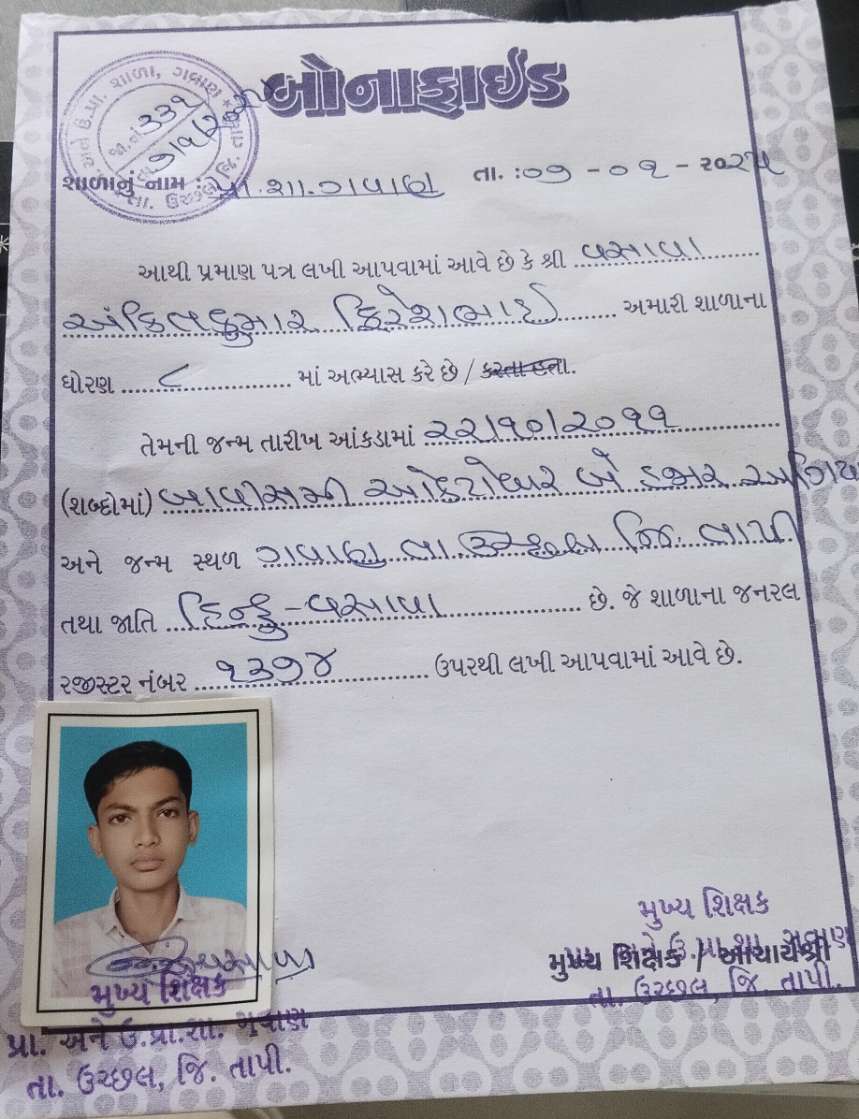 બોનાફાઈડ
અને ઉ.પ્રા. શાળા, ગવાણ
જા.નં. ૩૩૧
તા. ઉચ્છલ જિ.
શાળાનું નામ : પ્રા.શા.ગવાણ તા. : ૦૭ - ૦૧ - ૨૦૨૫
આથી પ્રમાણ પત્ર લખી આપવામાં આવે છે કે શ્રી વસાવા
અંકિતકુમાર ભાઈ અમારી શાળાના
ધોરણ ૮ માં અભ્યાસ કરે છે / કરતા હતા.
તેમની જન્મ તારીખ આંકડામાં ૨૨/૧૦/૨૦૧૧
(શબ્દોમાં) બાવીસમી ઓક્ટોબર બે હજાર અગિયા
અને જન્મ સ્થળ ગવાણ તા. ઉચ્છલ જિ. તાપી
તથા જાતિ હિન્દુ - વસાવા છે. જે શાળાના જનરલ
રજીસ્ટર નંબર ૧૩૭૪ ઉપરથી લખી આપવામાં આવે છે.
મુખ્ય શિક્ષક
મુખ્ય શિક્ષક / આચાર્યશ્રી
તા. ઉચ્છલ, જિ. તાપી.
મુખ્ય શિક્ષક
પ્રા. અને ઉ.પ્રા.શા. ગવાણ
તા. ઉચ્છલ, જિ. તાપી.